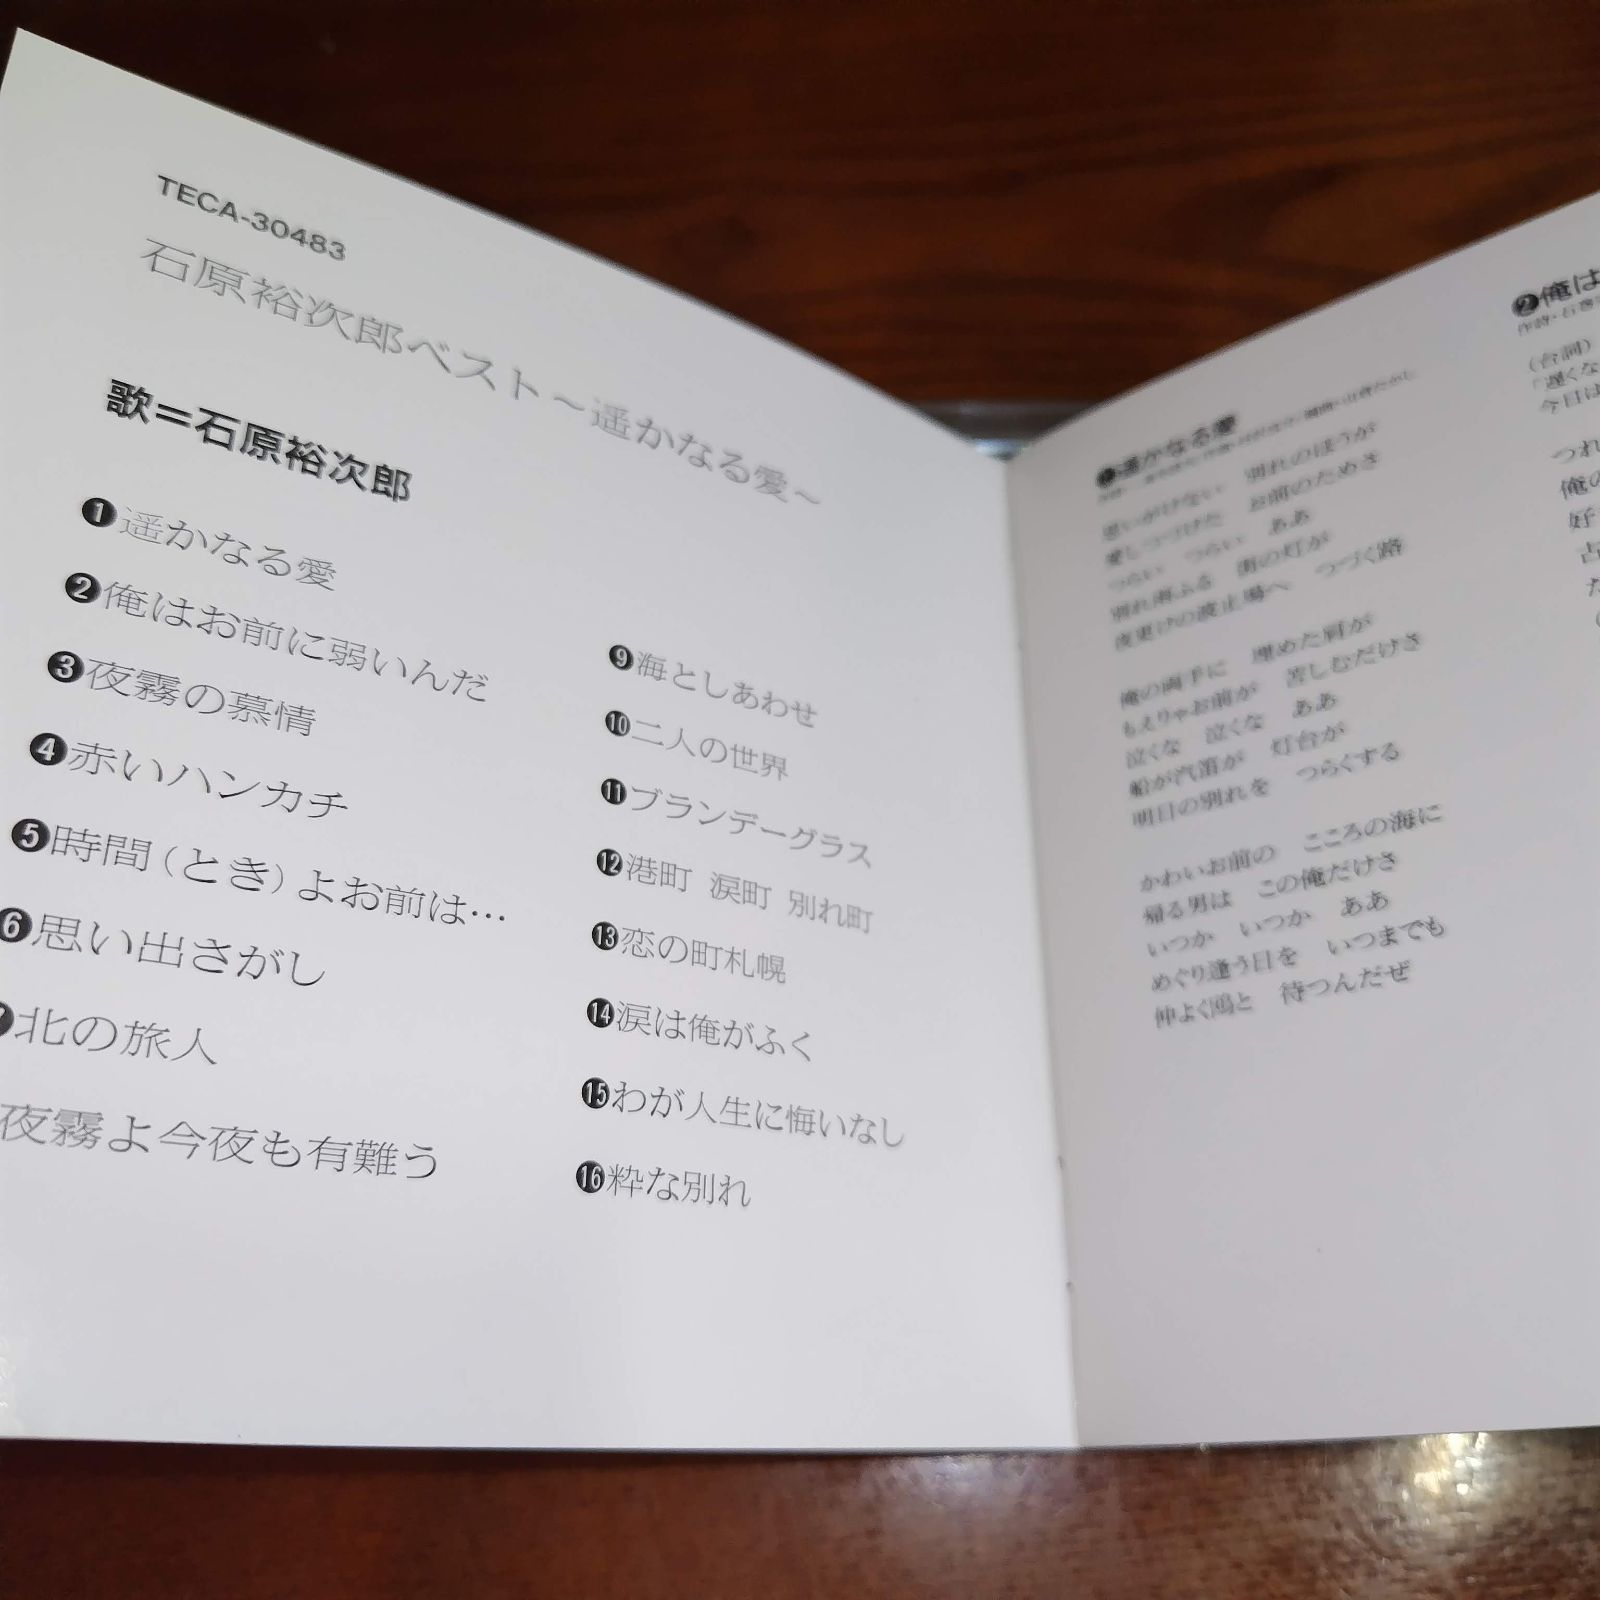 TECA-30483
石原裕次郎ベスト～遥かなる愛～
歌＝石原裕次郎
❶遥かなる愛
❷俺はお前に弱いんだ
❸夜霧の慕情
❹赤いハンカチ
❺時間(とき)よお前は…
❻思い出さがし
❼北の旅人
夜霧よ今夜も有難う
❾海としあわせ
❿二人の世界
⓫ブランデーグラス
⓬港町 涙町 別れ町
⓭恋の町札幌
⓮涙は俺がふく
⓯わが人生に悔いなし
⓰粋な別れ
❶遥かなる愛
思いがけない 別れのほうが
愛しつづけた お前のためさ
つらい つらい ああ
別れ雨ふる 街の灯が
夜更けの波止場へ つづく路
俺の両手に 埋めた肩が
もえりゃお前が 苦しむだけさ
泣くな 泣くな ああ
船が汽笛が 灯台が
明日の別れを つらくする
かわいお前の こころの海に
帰る男は この俺だけさ
いつか いつか ああ
めぐり逢う日を いつまでも
仲よく鴎と 待つんだぜ
❷俺は
(台詞)
「遅くな
今日は
つれ
俺の
好
占
だ